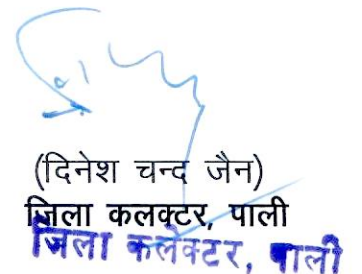 (दिनेश चन्द जैन)
जिला कलक्टर, पाली
जिला कलेक्टर, पाली